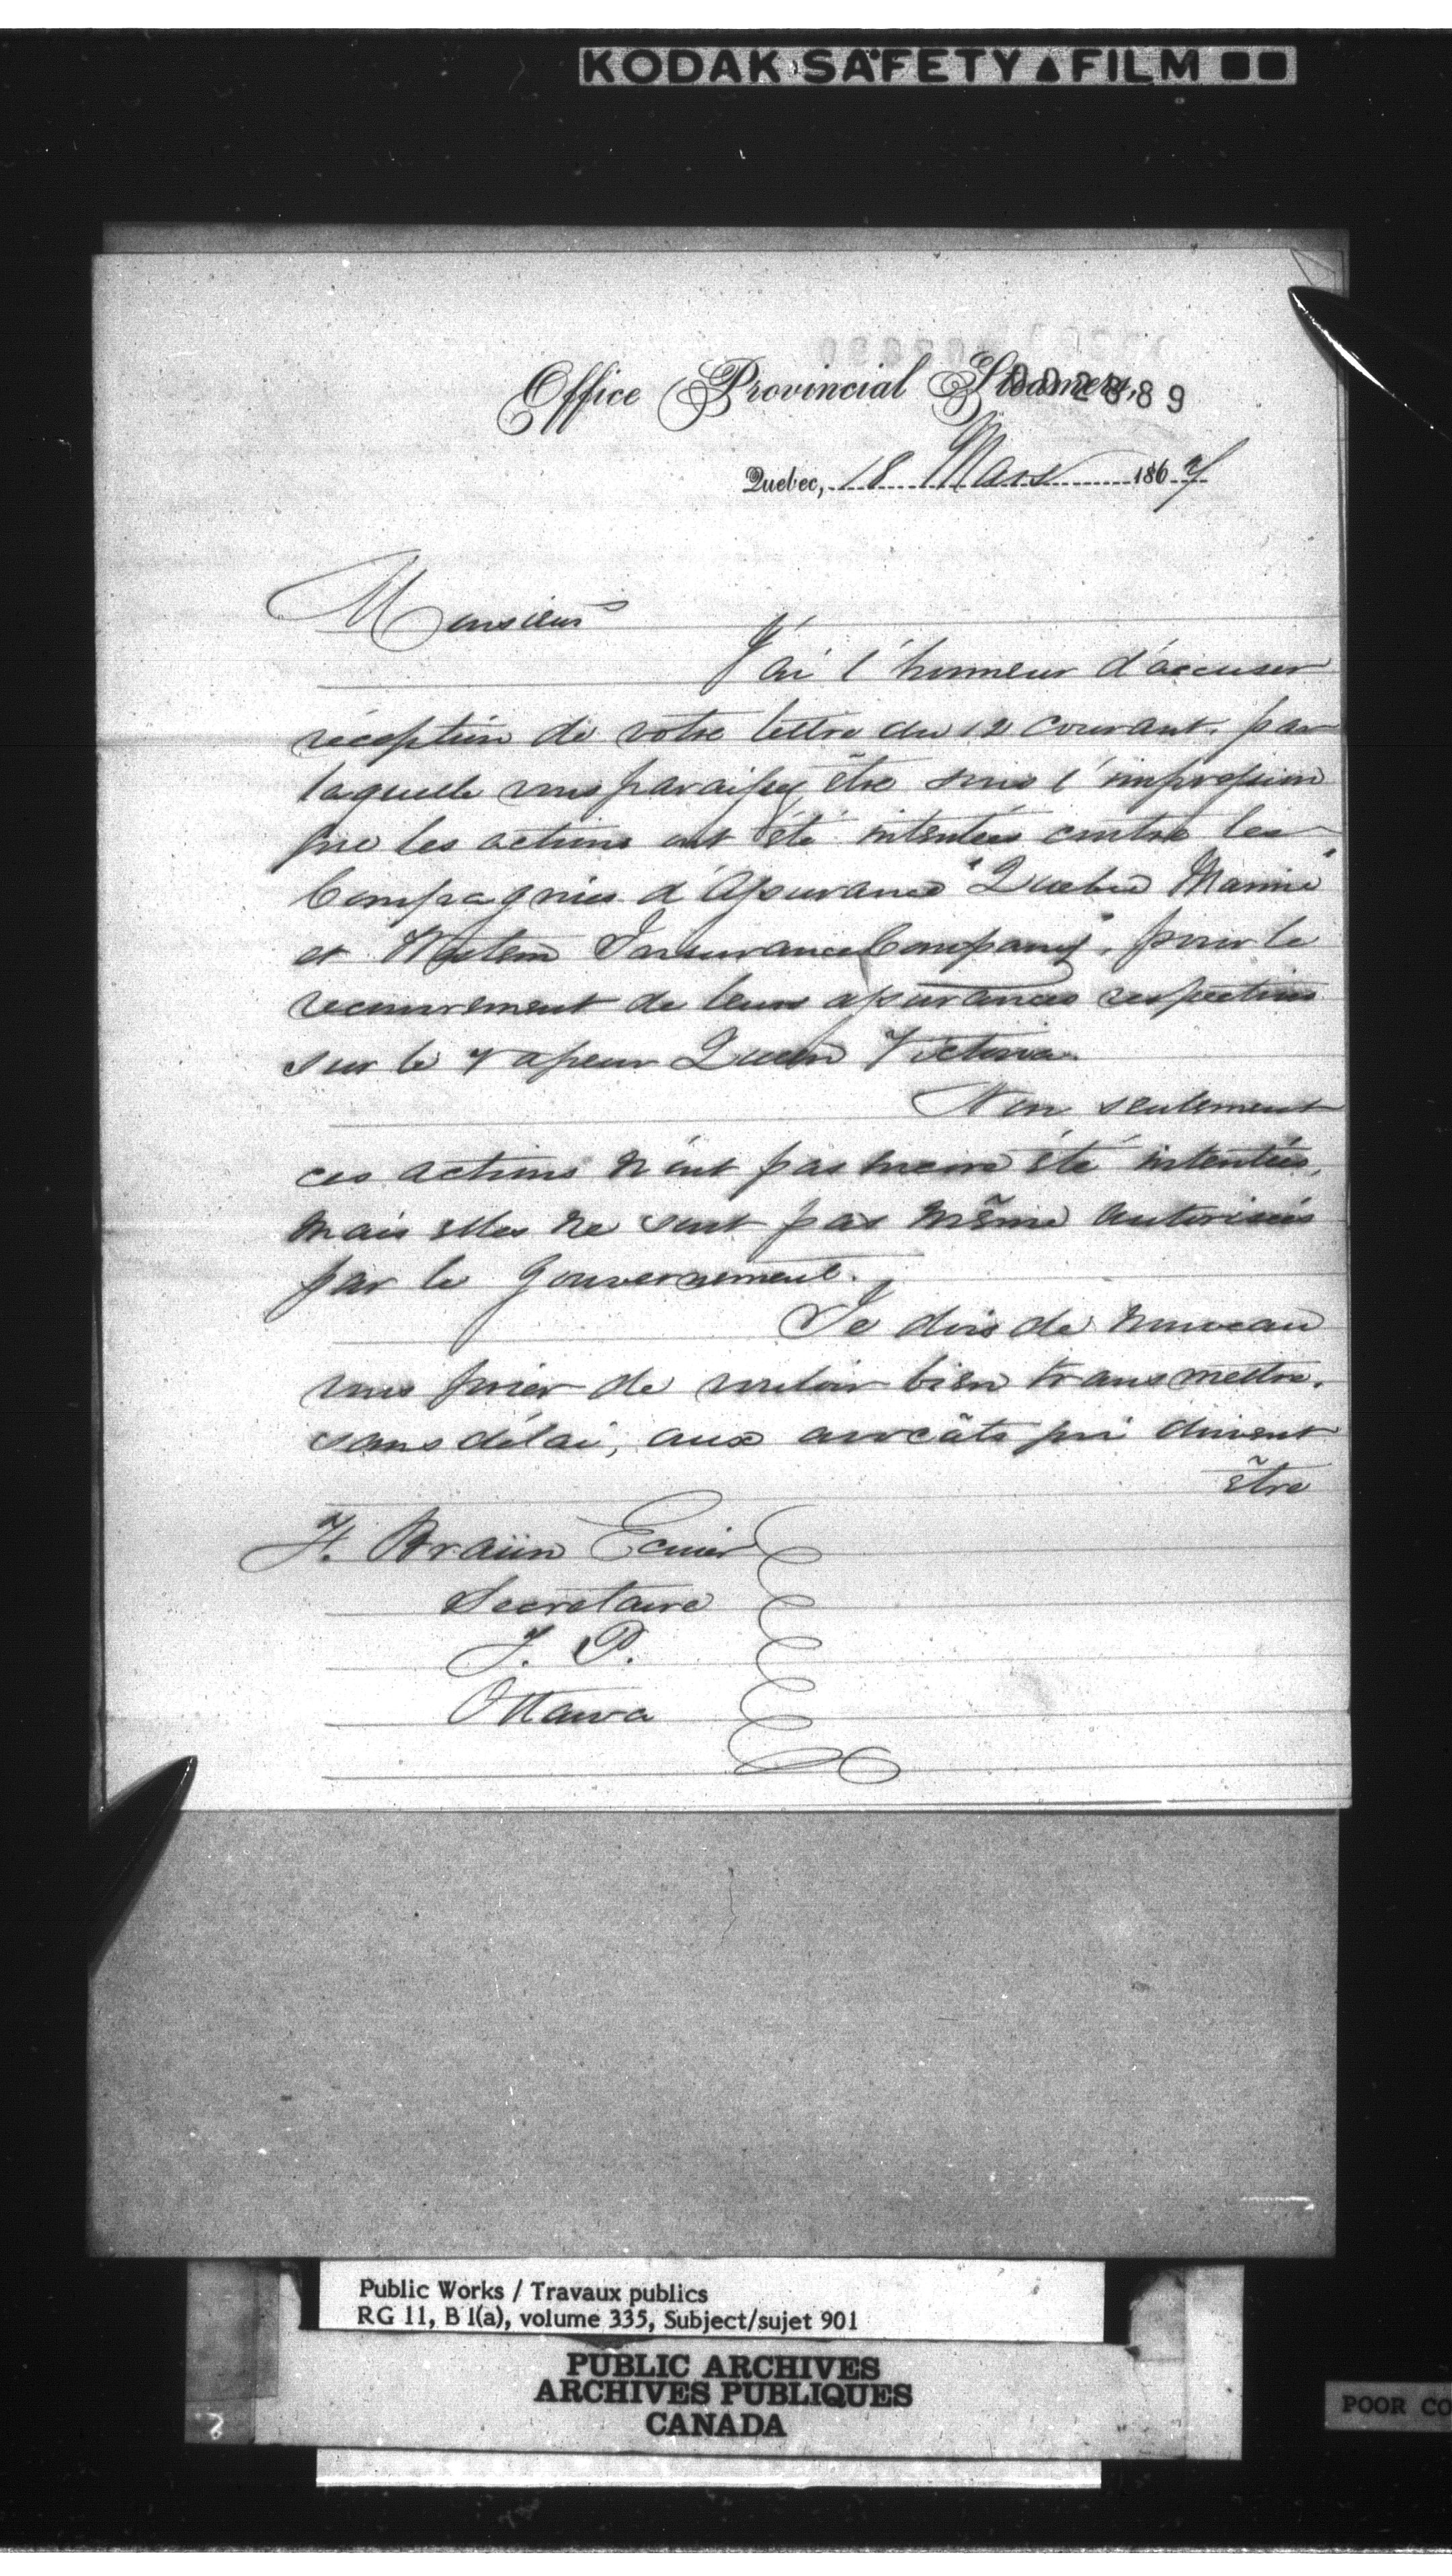 KODAK SAFETY ▲ FILM
Office Provincial Steamers,
002889
Quebec, 18 Mars 1867
Monsieur
J'ai l'honneur d'accuser
réception de votre lettre du 12 courant, par
laquelle vous paraissez être sous l'impression
que les actions ont été intentées contre les
Compagnies d'Assurance "Quebec Marine"
et Western Insurance Company", pour le
recouvrement de leurs assurances respectives
sur le vapeur Queen Victoria.
Non seulement
ces actions n'ont pas encore été intentées,
mais elles ne sont pas même autorisées
par le Gouvernement.
Je dois de nouveau
vous prier de vouloir bien transmettre,
sans délai, aux avocâts qui doivent
être
F. Braün Ecuier
Secretaire
T. P.
Ottawa
Public Works / Travaux publics
RG 11, B 1(a), volume 335, Subject/sujet 901
PUBLIC ARCHIVES
ARCHIVES PUBLIQUES
CANADA
POOR CO